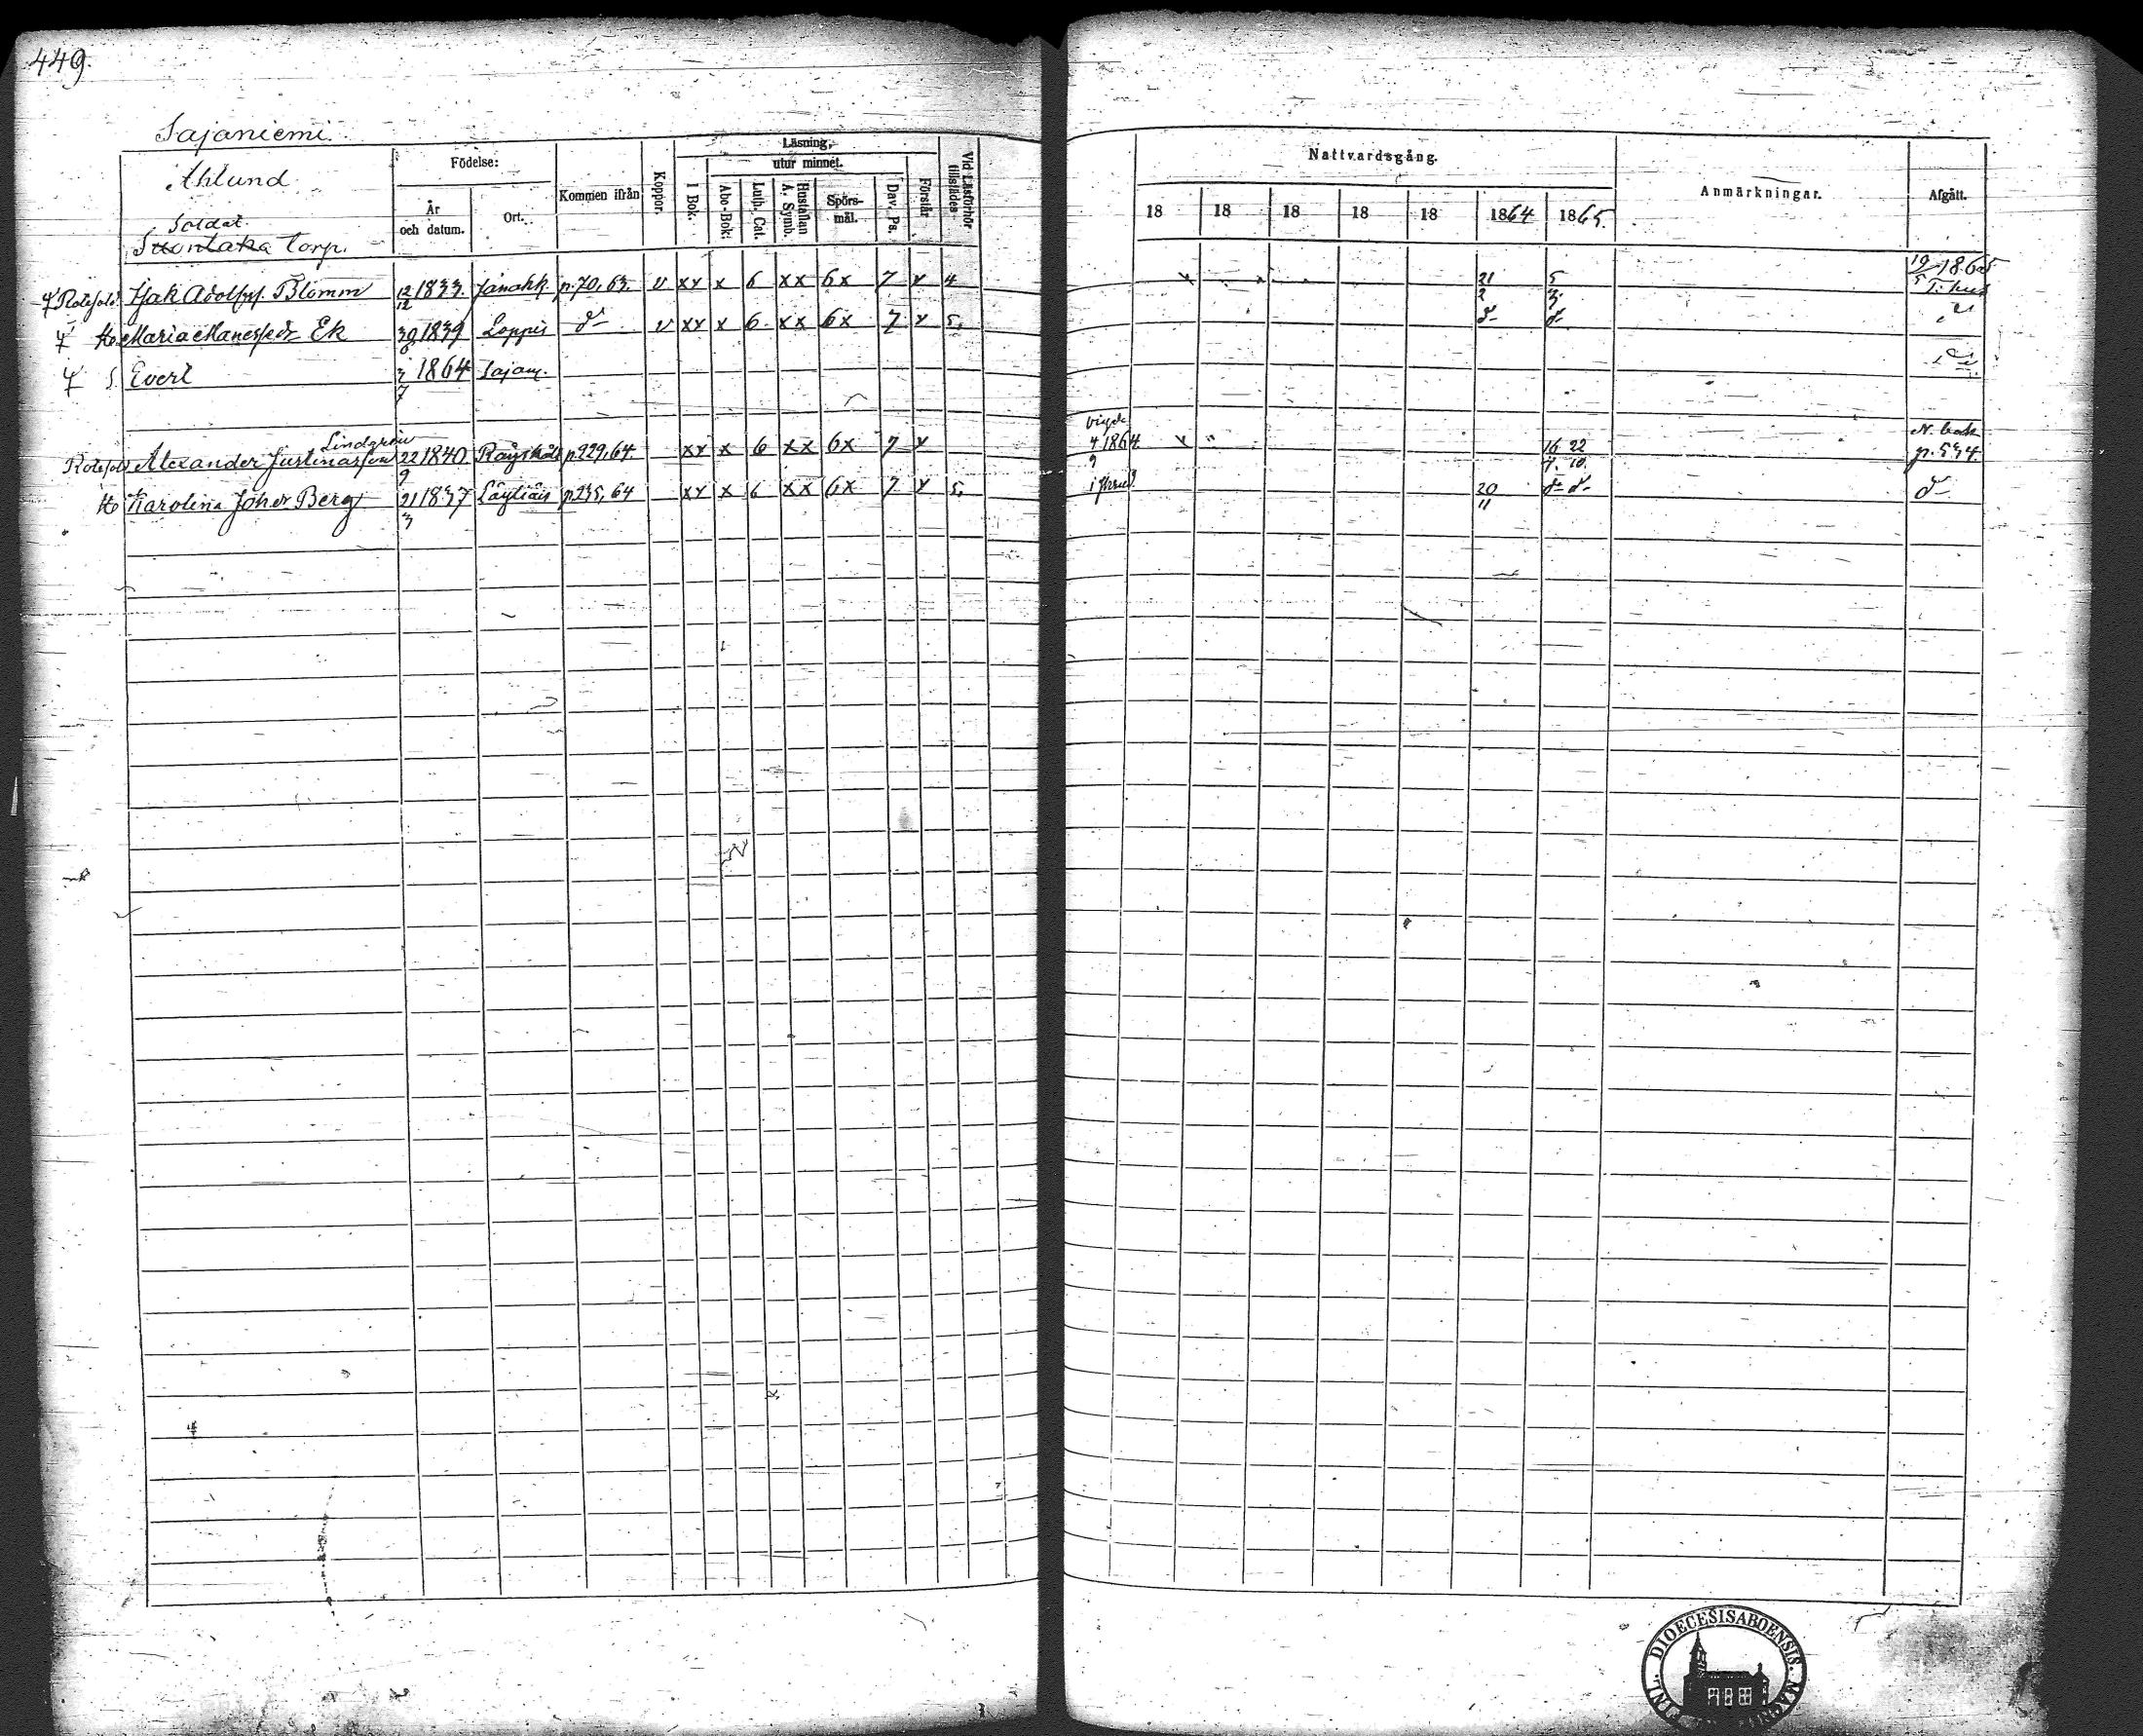 449.
Sajaniemi.
Ahlund
Soldat.
Suontaka torp.
Födelse:
År och datum.
Ort.
Kommen ifrån
Koppor.
Läsning,
utur minnet.
I Bok.
Abc-Bok.
Luth. Cat.
Hustaflan A. Symb.
Spörsmål.
Dav. Ps.
Förstår
Vid Läsförhör tillstädes
Nattvardsgång.
18 18 18 18 18 1864 1865.
Anmärkningar.
Afgått.
Rotesold. Isak Adolfss. Blomm 12/12 1833. Janakk. p.70,63. v xx x 6 xx 6x 7 x 4 21/2 5/3. 19/5 1865
Ho. Maria Mansdr Ek 30/6 1839 Loppis d- v xx x 6 xx 6x 7 x 5. d- d-
S. Evert 3/7 1864 Sajan.
Lindgren
Rotesold Alexander Justinasson 22/9 1840. p.229,64. xx x 6 xx 6x 7 x vigde 4/9 1864. 16/7. 22/10. N. bok p. 554.
Ho Karolina Johsdr Berg 21/3 1837 Läyliäis p.235,64 xx x 6 xx 6x 7 x 5. 20/11 d- d- d-
DIOECESIS ABOENSIS. MAGNI. FINL.